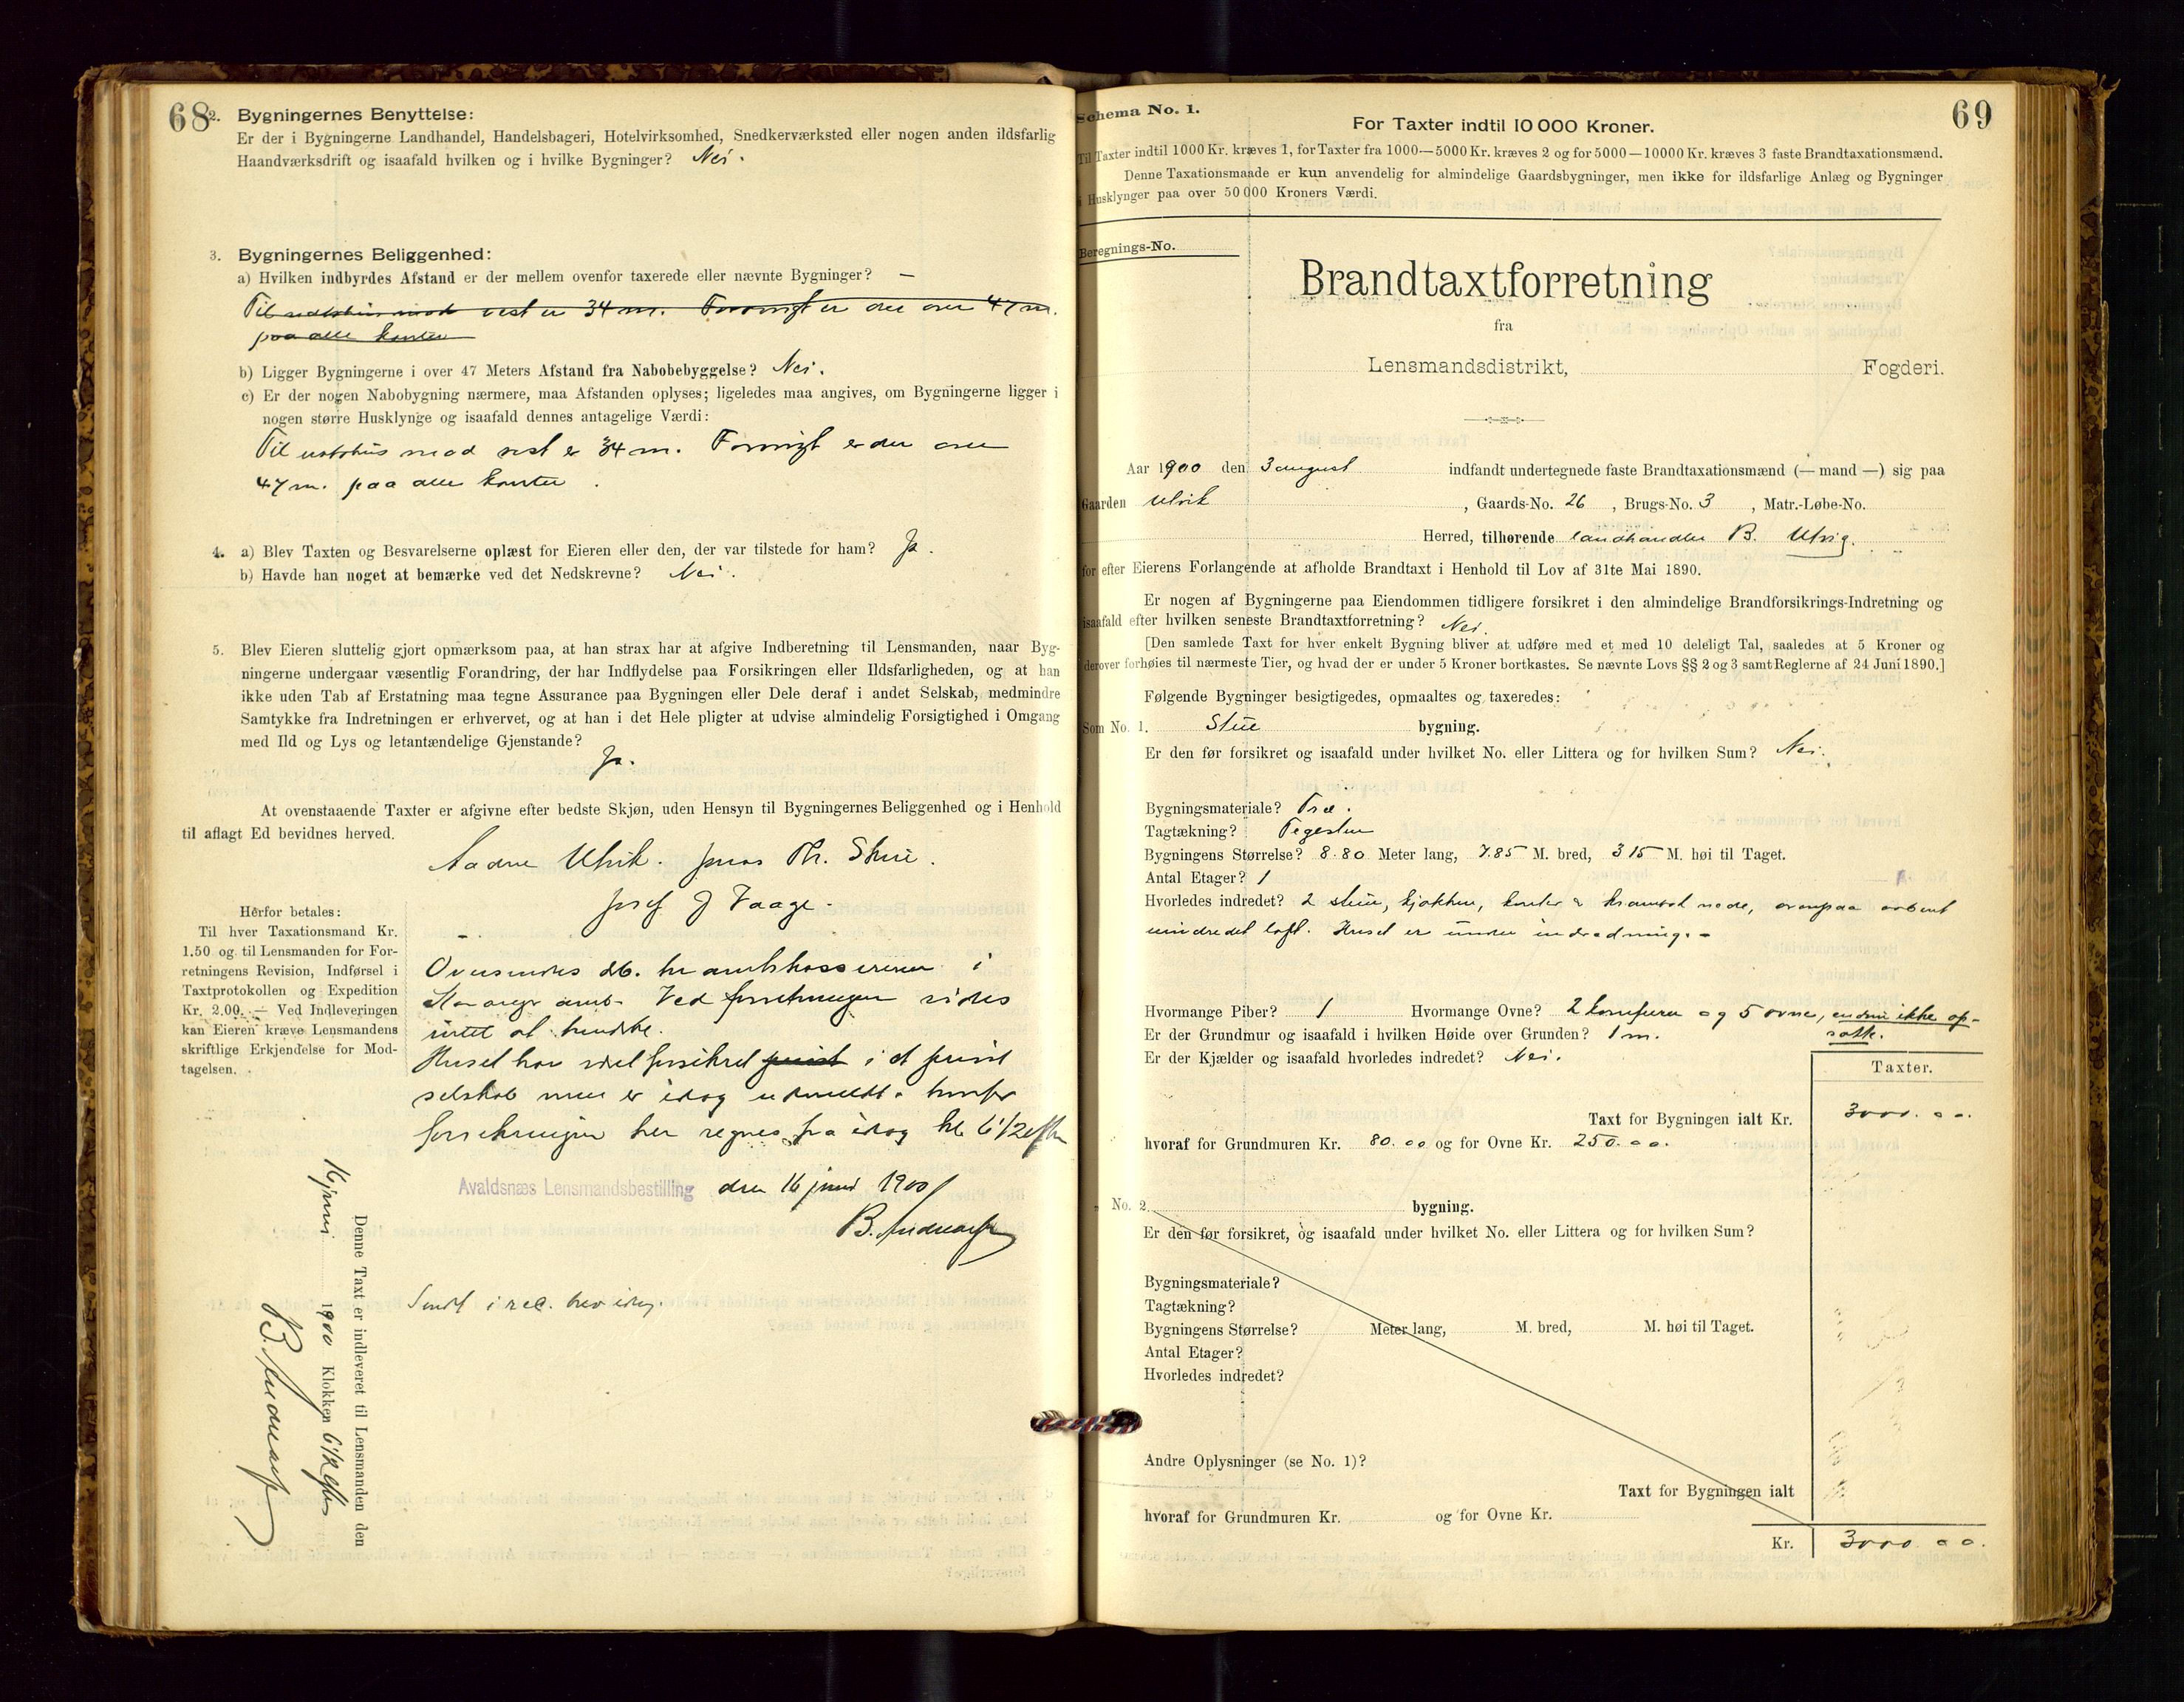 68
2. Bygningernes Benyttelse:
Er der i Bygningerne Landhandel, Handelsbageri, Hotelvirksomhed, Snedkerværksted eller nogen anden ildsfarlig
Haandværksdrift og isaafald hvilken og i hvilke Bygninger? Nei.
3. Bygningernes Beliggenhed:
a) Hvilken indbyrdes Afstand er der mellem ovenfor taxerede eller nævnte Bygninger? —
Til mod vest er 34 m. Forøvrigt er der over 47 m.
paa alle kanter
b) Ligger Bygningerne i over 47 Meters Afstand fra Nabobebyggelse? Nei.
c) Er der nogen Nabobygning nærmere, maa Afstanden oplyses; ligeledes maa angives, om Bygningerne ligger i
nogen større Husklynge og isaafald dennes antagelige Værdi:
Til mod vest er 34 m. Forøvrigt er der over
47 m. paa alle kanter.
4. a) Blev Taxten og Besvarelserne oplæst for Eieren eller den, der var tilstede for ham? Ja.
b) Havde han noget at bemærke ved det Nedskrevne? Nei.
5. Blev Eieren sluttelig gjort opmærksom paa, at han strax har at afgive Indberetning til Lensmanden, naar Byg-
ningerne undergaar væsentlig Forandring, der har Indflydelse paa Forsikringen eller Ildsfarligheden, og at han
ikke uden Tab af Erstatning maa tegne Assurance paa Bygningen eller Dele deraf i andet Selskab, medmindre
Samtykke fra Indretningen er erhvervet, og at han i det Hele pligter at udvise almindelig Forsigtighed i Omgang
med Ild og Lys og letantændelige Gjenstande?
Ja.
At ovenstaaende Taxter er afgivne efter bedste Skjøn, uden Hensyn til Bygningernes Beliggenhed og i Henhold
til aflagt Ed bevidnes herved.
Aadne Utvik. Jonas Th. Stue.
Josef J Vaage.
Herfor betales:
Til hver Taxationsmand Kr.
1.50 og til Lensmanden for For-
retningens Revision, Indførsel i
Taxtprotokollen og Expedition
Kr. 2.00. — Ved Indleveringen
kan Eieren kræve Lensmandens
skriftlige Erkjendelse for Mod-
tagelsen.
Oversendes hr. amtskassereren i
Stavanger amt. Ved forretningen vides
intet at bemærke.
Huset har været forsikret privat i et privat
selskab men er idag udmeldt, hvorfor
forsikringen her regnes fra idag kl. 6 1/2 eftm
Avaldsnæs Lensmandsbestilling den 16 juni 1900
B. Andreassen
Sendt i rec. brev idag.
Denne Taxt er indleveret til Lensmanden den
16 juni 1900 Klokken 6 1/2 eftm
B. Andreassen
69
Schema No. 1.
For Taxter indtil 10 000 Kroner.
Til Taxter indtil 1000 Kr. kræves 1, for Taxter fra 1000—5000 Kr. kræves 2 og for 5000—10000 Kr. kræves 3 faste Brandtaxationsmænd.
Denne Taxationsmaade er kun anvendelig for almindelige Gaardsbygninger, men ikke for ildsfarlige Anlæg og Bygninger
i Husklynger paa over 50 000 Kroners Værdi.
Beregnings-No.
Brandtaxtforretning
fra
Lensmandsdistrikt, Fogderi.
Aar 1900 den 3 august indfandt undertegnede faste Brandtaxationsmænd (— mand —) sig paa
Gaarden Utvik, Gaards-No. 26, Brugs-No. 3, Matr.-Løbe-No.
Herred, tilhørende landhandler B. Utvig.
for efter Eierens Forlangende at afholde Brandtaxt i Henhold til Lov af 31te Mai 1890.
Er nogen af Bygningerne paa Eiendommen tidligere forsikret i den almindelige Brandforsikrings-Indretning og
isaafald efter hvilken seneste Brandtaxtforretning? Nei.
[Den samlede Taxt for hver enkelt Bygning bliver at udføre med et med 10 deleligt Tal, saaledes at 5 Kroner og
derover forhøies til nærmeste Tier, og hvad der er under 5 Kroner bortkastes. Se nævnte Lovs §§ 2 og 3 samt Reglerne af 24 Juni 1890.]
Følgende Bygninger besigtigedes, opmaaltes og taxeredes:
Som No. 1. Stue bygning.
Er den før forsikret og isaafald under hvilket No. eller Littera og for hvilken Sum? Nei.
Bygningsmateriale? Træ.
Tagtækning? Tegesten
Bygningens Størrelse? 8.80 Meter lang, 7.85 M. bred, 3 15 M. høi til Taget.
Antal Etager? 1
Hvorledes indredet? 2 stuer, kjøkken, kontor & krambod nede, ovenpaa
uindredet loft. Huset er under indredning. -
Hvormange Piber? 1 Hvormange Ovne? 2 komfurer og 5 ovne, endnu ikke op-
satte.
Er der Grundmur og isaafald i hvilken Høide over Grunden? 1 m.
Er der Kjælder og isaafald hvorledes indredet? Nei.
Taxter.
Taxt for Bygningen ialt Kr. 3000.00.
hvoraf for Grundmuren Kr. 80.00 og for Ovne Kr. 250.00.
„ No. 2. bygning.
Er den før forsikret, og isaafald under hvilket No. eller Littera og for hvilken Sum?
Bygningsmateriale?
Tagtækning?
Bygningens Størrelse? Meter lang, M. bred, M. høi til Taget.
Antal Etager?
Hvorledes indredet?
Andre Oplysninger (se No. 1)?
Taxt for Bygningen ialt
hvoraf for Grundmuren Kr. og for Ovne Kr.
Kr. 3000 00.